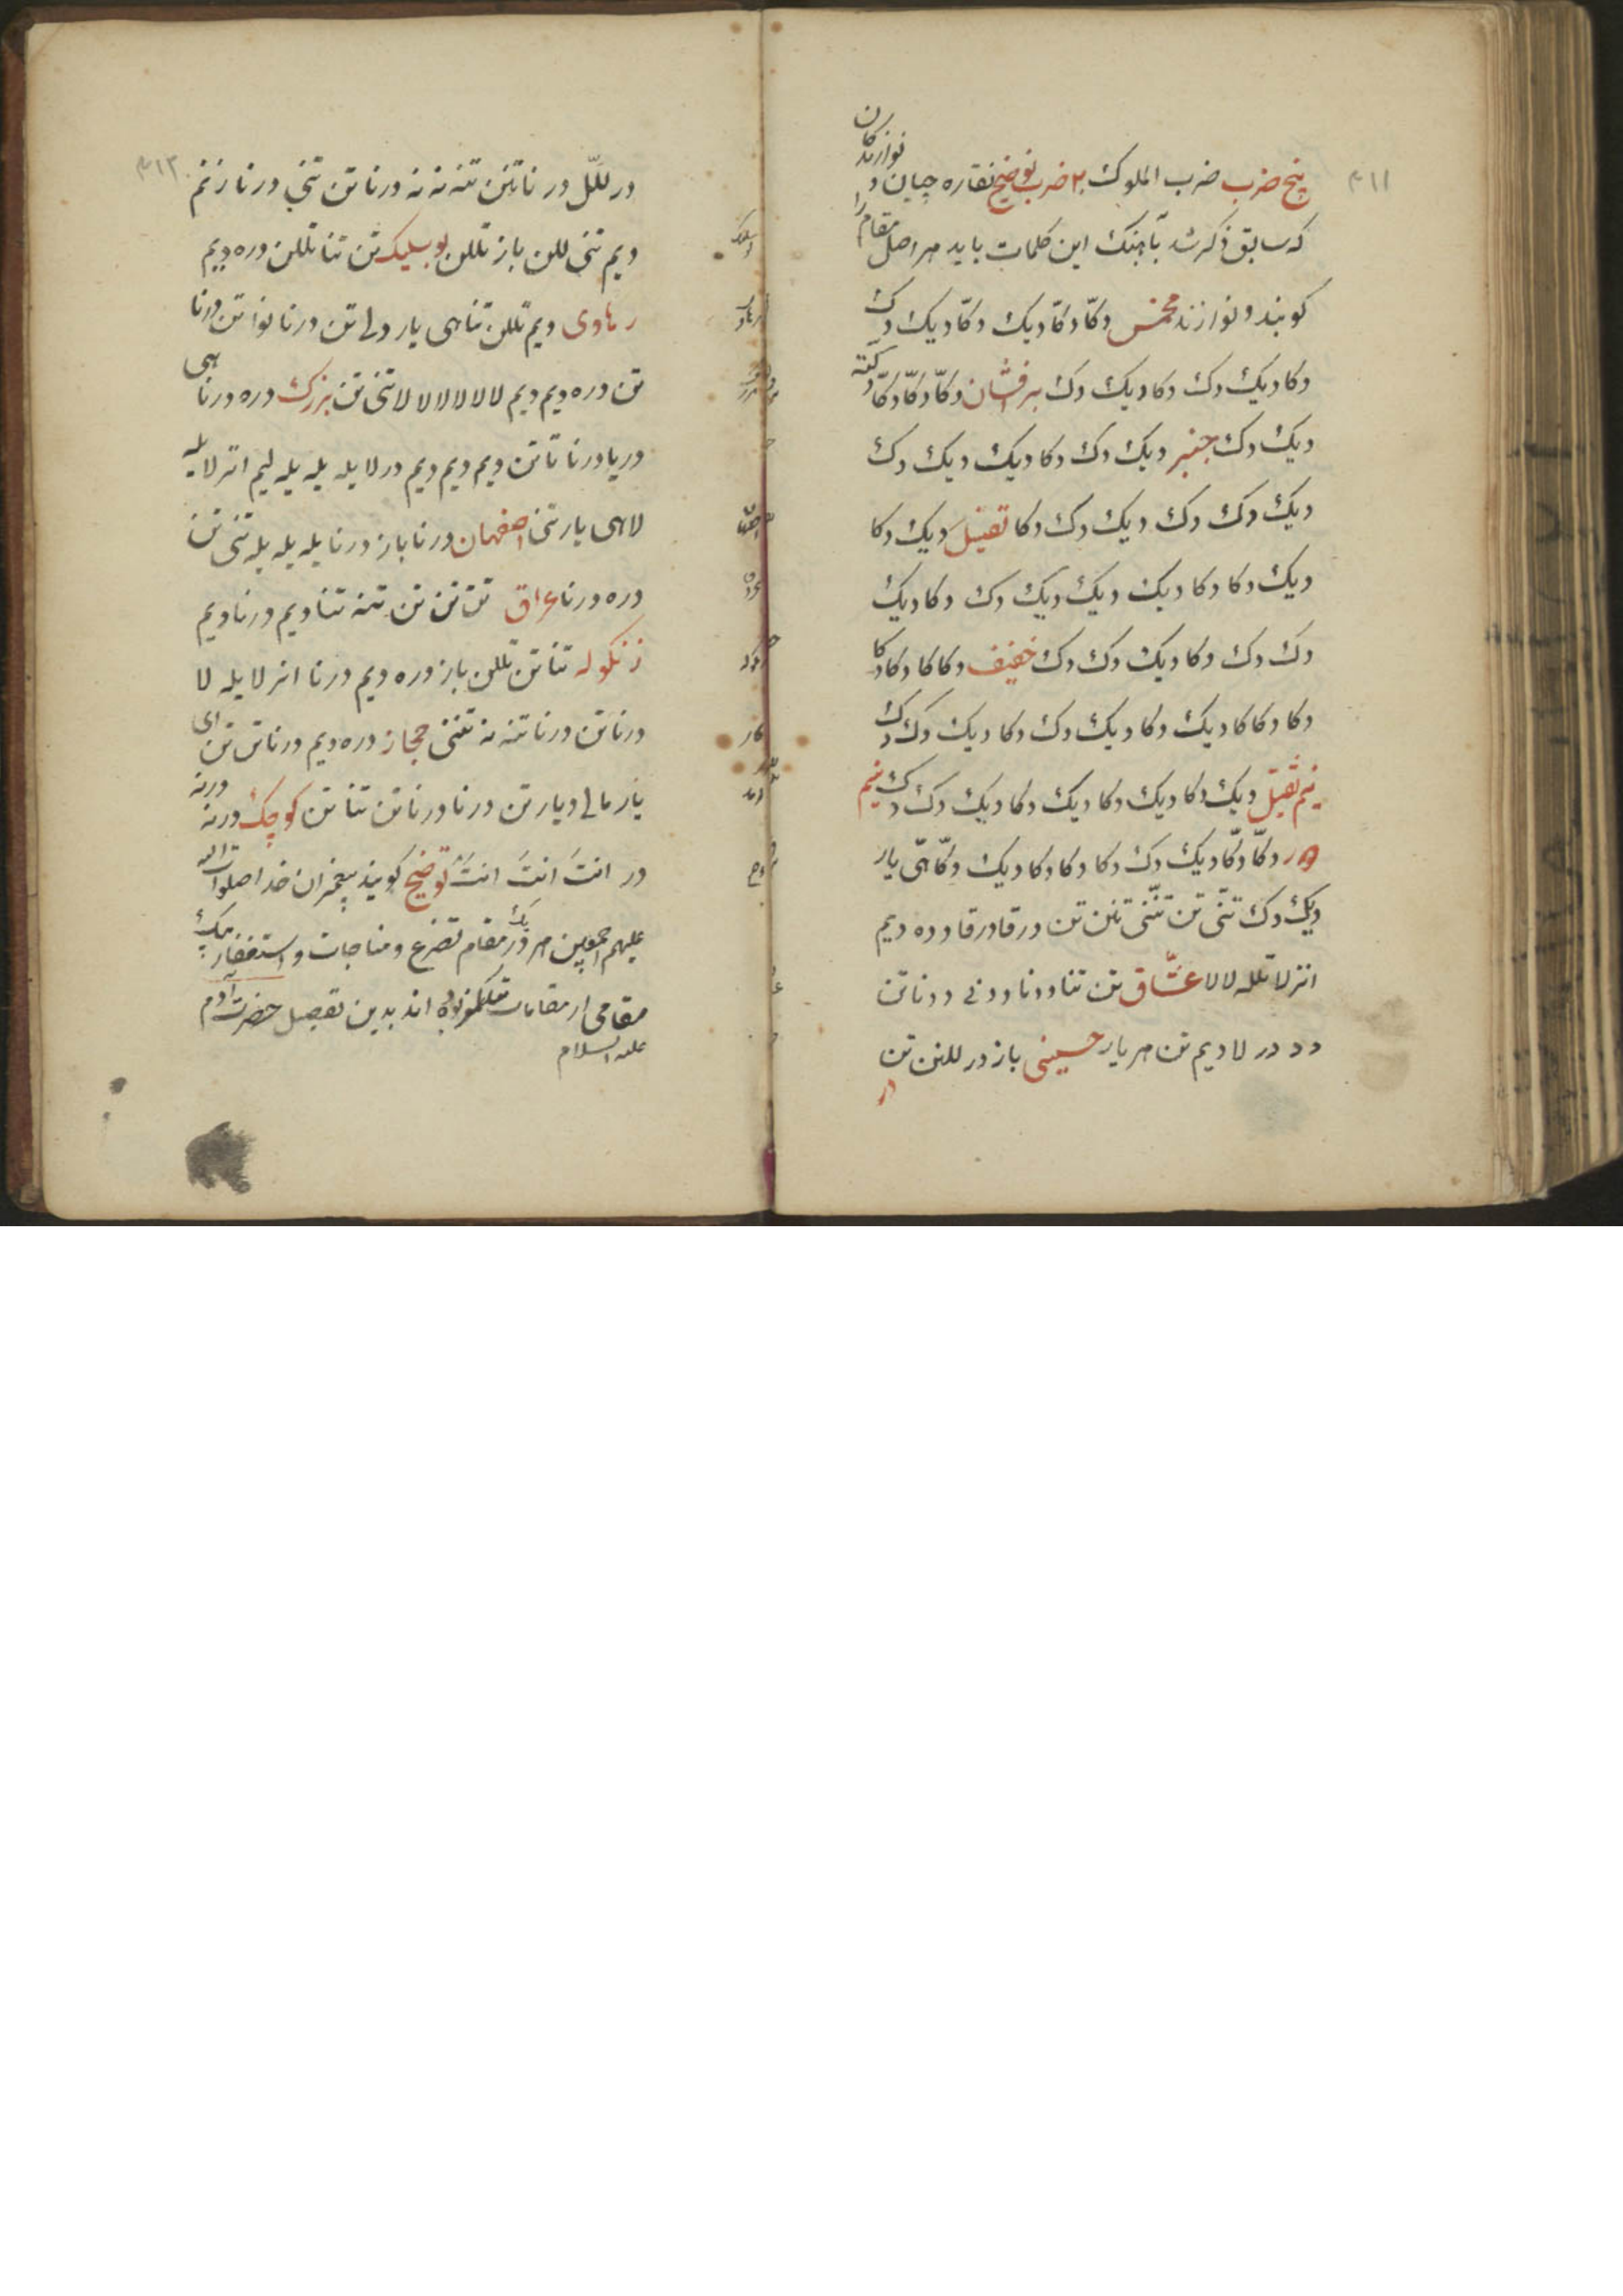 ۳۱۱
پنج ضرب ضرب الملوک ۲ ضرب توضیح نقاره چیان و نوازندکان
که سابق ذکر شد بآهنک این کلمات باید هر اصل مقام را
کویند و نوازند مخمس دکّا دکّا دیک دکّا دیک دک
دکا دیک دک دکا دیک دک برفشان دکّا دکّا دکّا
دیک دک چنبر دیک دک دکا دیک دیک دک
دیک دک دک دیک دک دکا ثقیل دیک دکا
دیک دکا دکا دیک دیک دیک دک دکا دیک
دک دک دکا دیک دک دک خفیف دکا کا دکا دکا
دکا دکا کا دیک دکا دیک دک دکا دیک دک دک
نیم ثقیل دیک دکا دیک دکا دیک دکا دیک دک دک نیم
دور دکّا دکّا دیک دک دکا دکا دکا دیک دکّا هی یار
دیک دک تنی تن تننی تلن تن درقا درقا دده دیم
انزلا تلله لالا عشّاق تن تنا ددنا ددنی ددنا تن
دد در لا دیم تن هر یار حسینی باز در للنن تن
در
۳۱۲
در للّل در نا تنن تنه نه نه درنا تن تنی درنا زنم
دیم تنی للن باز تللن بوسلیک تن تنا تللن دره دیم
رهاوی دیم تللن تنا هی یار دلی تن درنا نوا تن درنا
تن دره دیم دیم لالا لالا لالا لا تنی تن بزرک دره درنا هی
دریا درنا تا تن دیم دیم دیم در لا یله یله یله لیم انر لا یله
لا هی یار تنی اصفهان درنا باز درنا یله یله یله تنی تن
دره درنا عراق تن تن تن تنه تنا دیم درنا دیم
زنکوله تنا تن تللن باز دره دیم درنا انر لا یله لا
درنا تن درنا تنه نه تننی حجاز دره دیم درنا تن تن ای
یار مالی دیار تن درنا درنا تن تنا تن کوچک درنه درنه
در انتَ انتَ انتَ توضیح کویند پیغمبران خدا صلوات الله
علیهم اجمعین هر یک در مقام تضرع و مناجات و استغفار بیک
مقامی از مقامات تکلم نموده اند بدین تفصیل حضرت آدم
علیه السلام